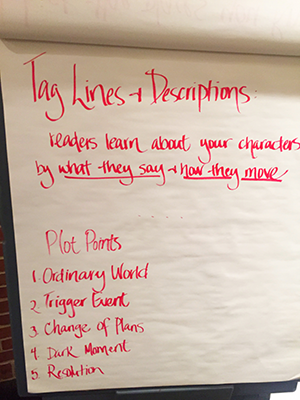 Tag Lines + Descriptions:
readers learn about your characters
by what they say + how they move
Plot Points
1. Ordinary World
2. Trigger Event
3. Change of Plans
4. Dark Moment
5. Resolution